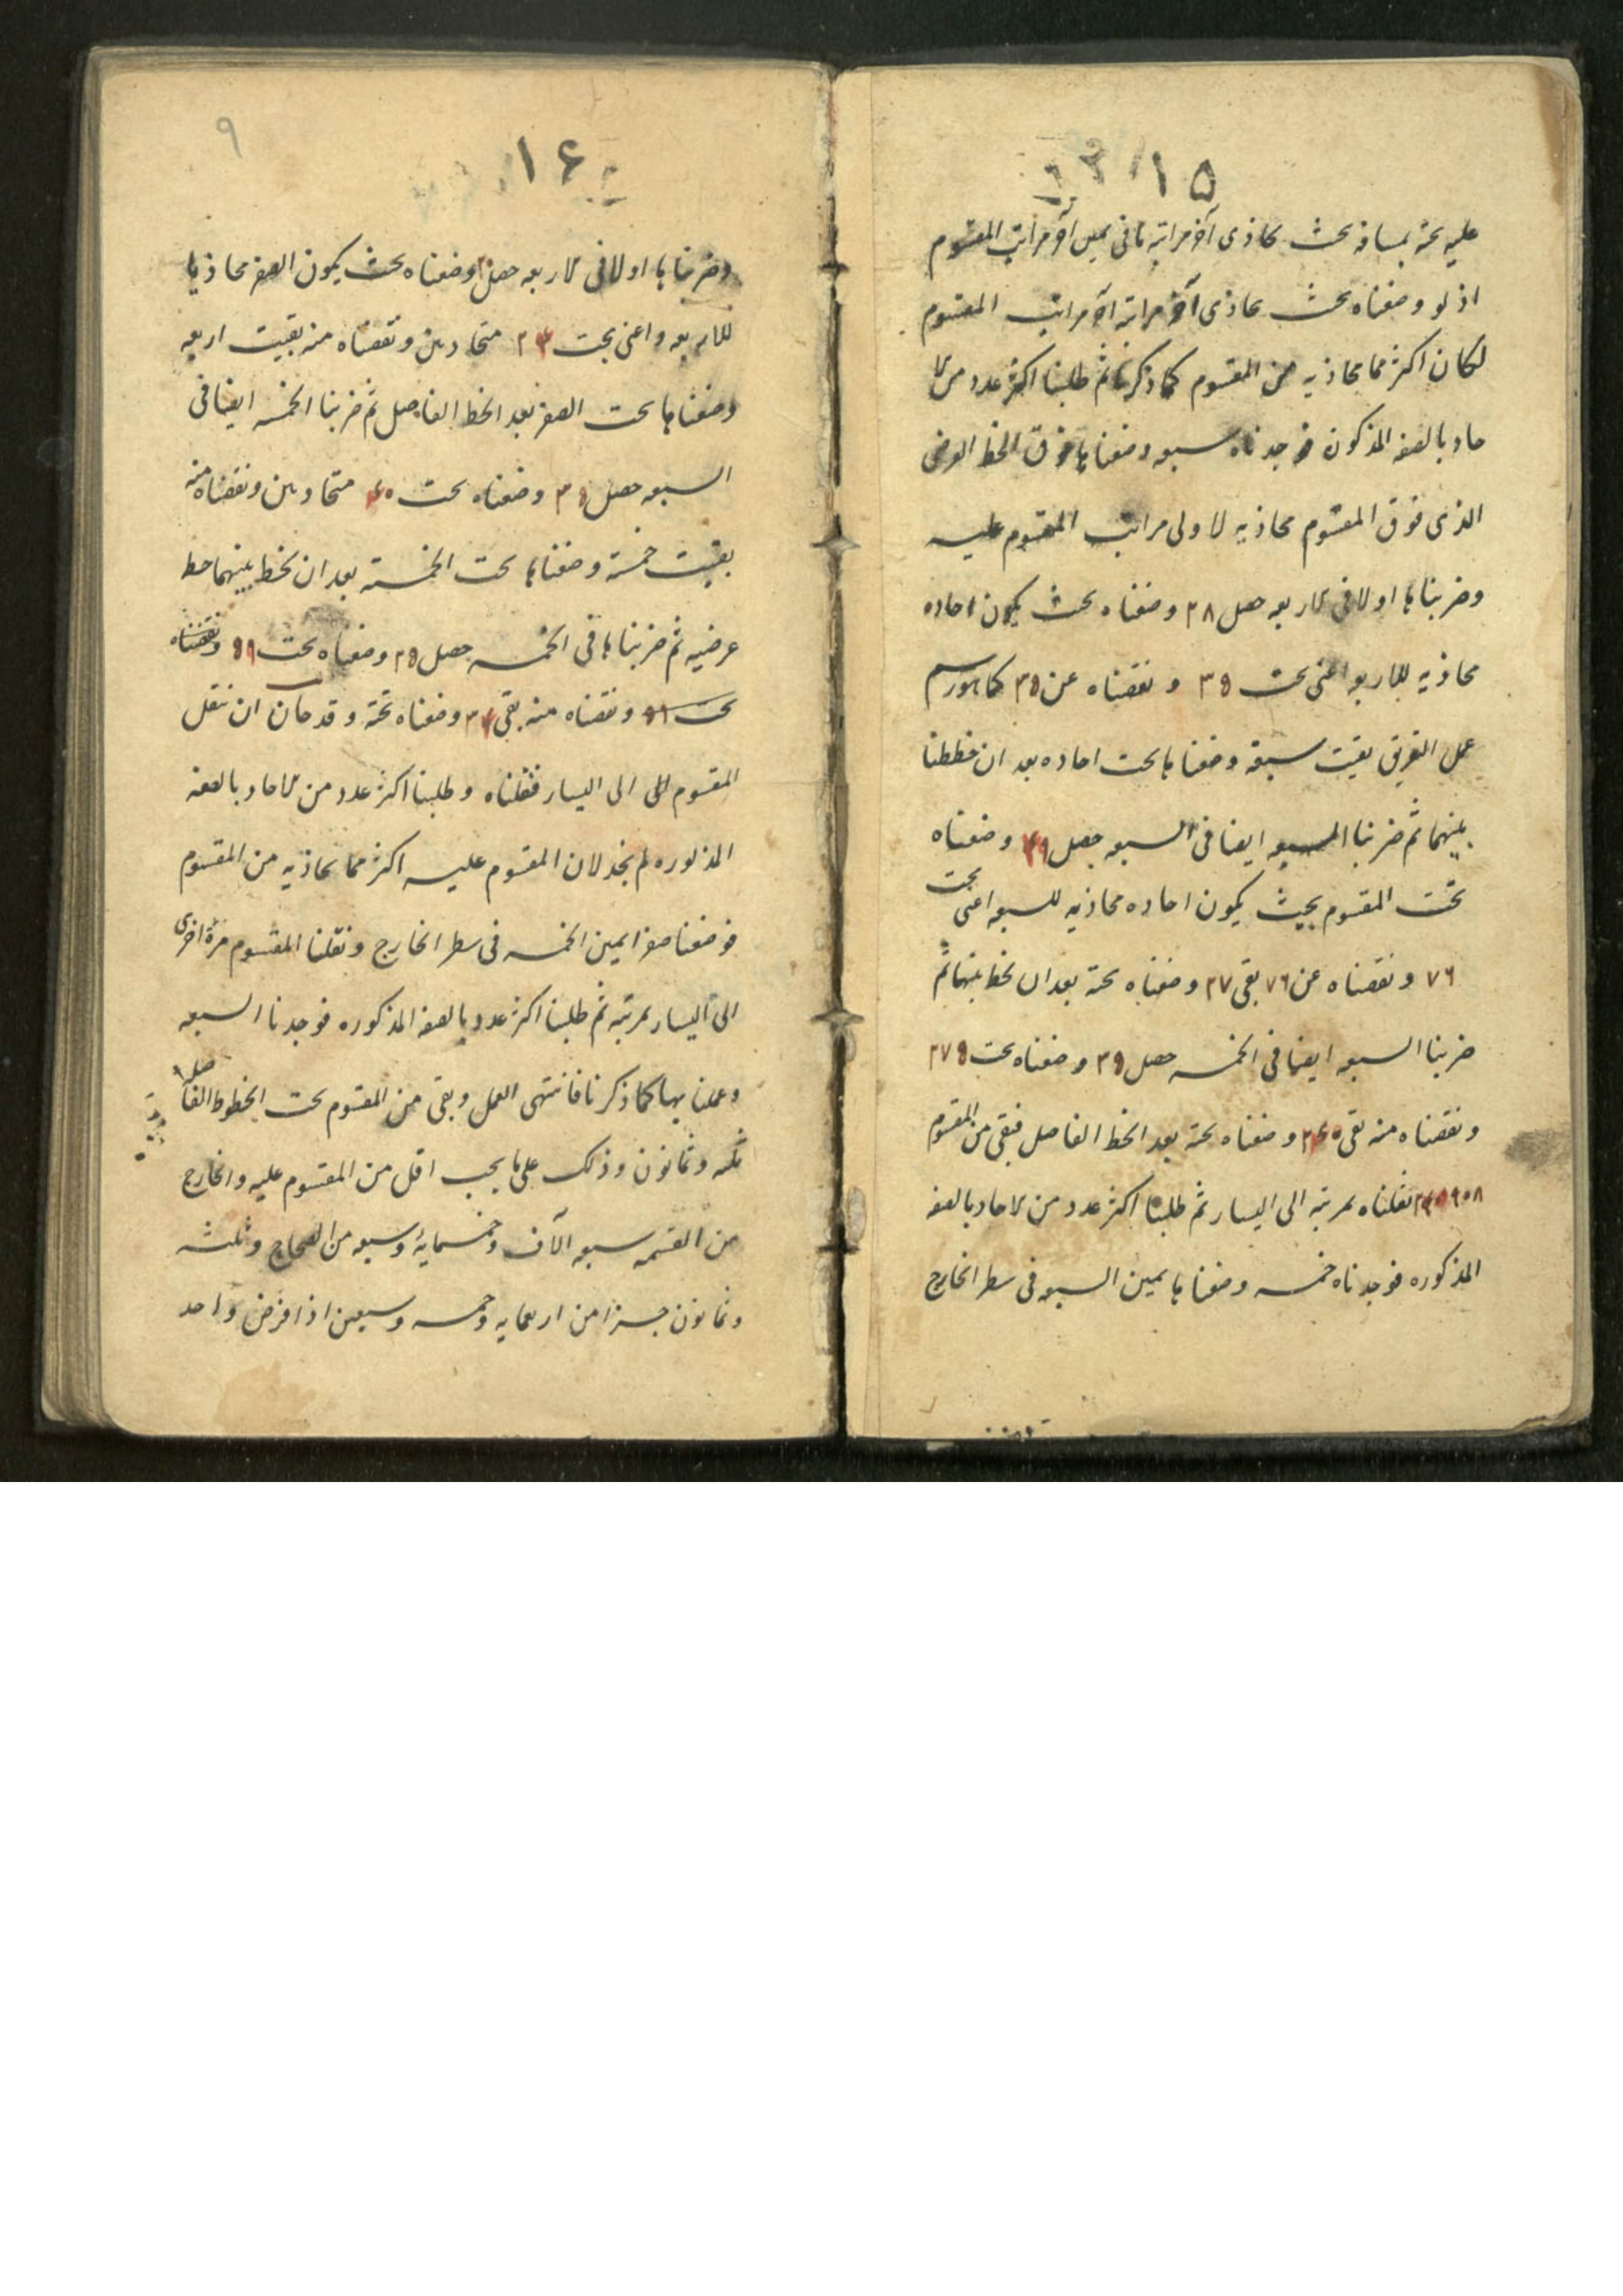 ١٥
عليه تحته بمسافة بحيث يحاذى آخر مراتبه ما فى يمين آخر مراتب المقسوم
اذ لو وضعناه بحيث يحاذى آخر مراتبه آخر مراتب المقسوم
لكان اكثر مما يحاذيه من المقسوم كما ذكرنا ثم طلبنا اكثر عدد من الا
حاد بالصفة المذكورة فوجدناه سبعه وضعناها فوق الخط العرضى
الذى فوق المقسوم محاذيه لاولى مراتب المقسوم عليه
وضربناها اولا فى الاربعه حصل ٢٨ وضعناه بحيث يكون احاده
محاذيه للاربعه اعنى تحت ٣٥ و نقصناه عن ٣٥ كما هو رسم
عمل التفريق بقيت سبعة وضعناها تحت احاده بعد ان خططنا
بينهما ثم ضربنا السبعه ايضا فى السبعه حصل ٤٩ وضعناه
تحت المقسوم بحيث يكون احاده محاذيه للسبعه اعنى تحت
٧٦ و نقصناه عن ٧٦ بقى ٢٧ وضعناه تحته بعد ان نخط بينهما ثم
ضربنا السبعه ايضا فى الخمسه حصل ٣٥ وضعناه تحت ٢٧٥
ونقصناه منه بقى ٢٤٠ وضعناه تحته بعد الخط الفاصل فبقى من المقسوم
نقلناه بمرتبه الى اليسار ثم طلبنا اكثر عدد من الاحاد بالصفه
المذكوره فوجدناه خمسه وضعناها يمين السبعه فى سطر الخارج
٩
١۶
وضربناها اولا فى الاربعه حصل ٢٠ وضعناه بحيث يكون الصفر محاذيا
للاربعه واعنى تحت ٢٤ متحاديين ونقصناه منه بقيت اربعه
وضعناها تحت الصفر بعد الخط الفاصل ثم ضربنا الخمسه ايضا فى
السبعه حصل ٣٥ وضعناه تحت ٤٠ متحاديين ونقصناه منه
بقيت خمسة وضعناها تحت الخمسة بعد ان نخط بينهما خط
عرضيه ثم ضربناها فى الخمسه حصل ٢٥ وضعناه تحت ٥٩ ونقصناه
تحت ٥٩ ونقصناه منه بقى ٣٤ وضعناه تحته وقد حان ان ننقل
المقسوم الى الى اليسار فنقلناه وطلبنا اكثر عدد من الاحاد بالصفه
المذكوره لم نجد لان المقسوم عليه اكثر مما يحاذيه من المقسوم
فوضعنا صفرا يمين الخمسه فى سطر الخارج ونقلنا المقسوم مرة اخرى
الى اليسار بمرتبه ثم طلبنا اكثر عدد بالصفه المذكوره فوجدنا السبعه
وعملنا بها كما ذكرنا فانتهى العمل وبقى من المقسوم تحت الخطوط الفاصله
ثلثه وثمانون وذلك على ما يجب اقل من المقسوم عليه والخارج
من القسمه سبعه آلاف وخمسمايه وسبعه من الصحاح وثلثه
وثمانون جزءا من اربعمايه وخمسه وسبعين اذا فرض واحد